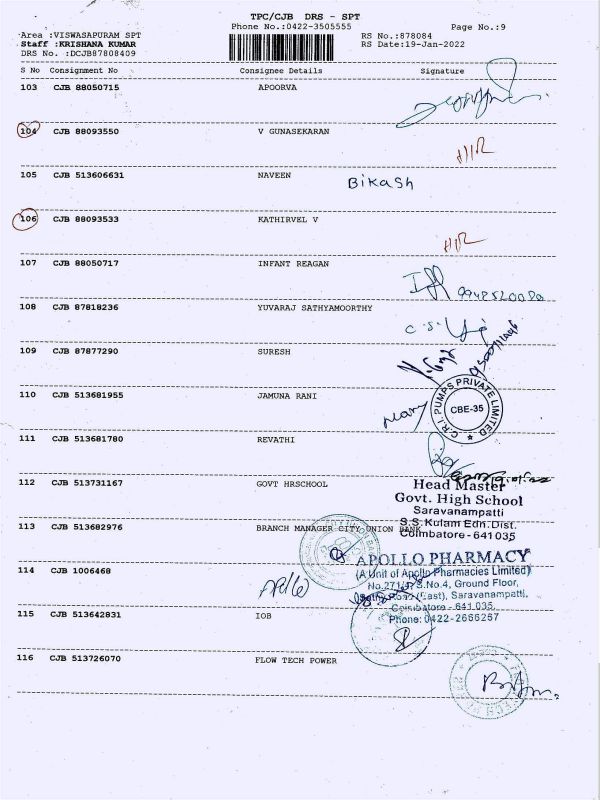 TPC/CJB DRS - SPT
Phone No.:0422-3505555 Page No.:9
Area :VISWASAPURAM SPT RS No.:878084
Staff :KRISHANA KUMAR RS Date:19-Jan-2022
DRS No. :DCJB87808409
S No Consignment No Consignee Details Signature
103 CJB 88050715 APOORVA
104 CJB 88093550 V GUNASEKARAN
105 CJB 513606631 NAVEEN Bikash
106 CJB 88093533 KATHIRVEL V
107 CJB 88050717 INFANT REAGAN
108 CJB 87818236 YUVARAJ SATHYAMOORTHY
109 CJB 87877290 SURESH
C.R.I. PUMPS PRIVATE LIMITED
CBE-35
110 CJB 513681955 JAMUNA RANI
111 CJB 513681780 REVATHI
112 CJB 513731167 GOVT HRSCHOOL
Head Master
Govt. High School
Saravanampatti
S.S.Kulam Edn.Dist.
Coimbatore-641035
113 CJB 513682976 BRANCH MANAGER CITY UNION BANK
APOLLO PHARMACY
(A Unit of Apollo Pharmacies Limited)
No.271/1, S.No.4, Ground Floor,
(East), Saravanampatti,
Coimbatore - 641 035.
Phone: 0422-2666267
114 CJB 1006468
115 CJB 513642831 IOB
116 CJB 513726070 FLOW TECH POWER